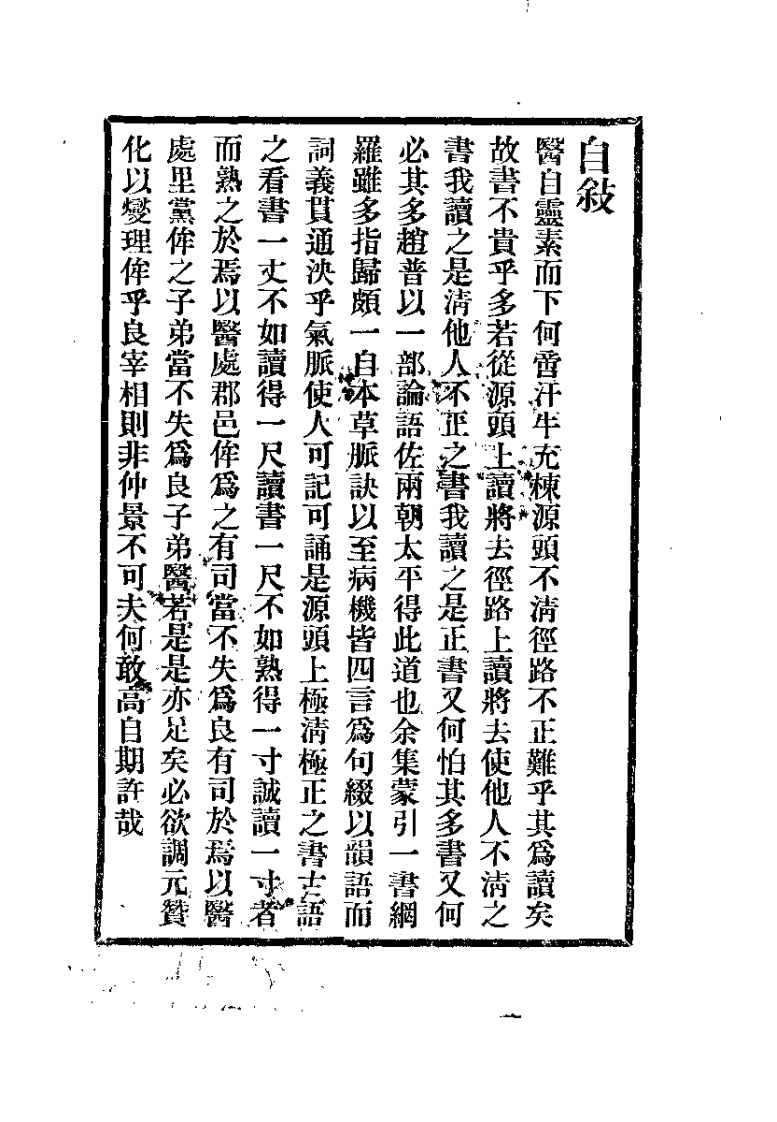 自敍
醫自靈素而下何啻汗牛充棟源頭不淸徑路不正難乎其爲讀矣
故書不貴乎多若從源頭上讀將去徑路上讀將去使他人不淸之
書我讀之是淸他人不正之書我讀之是正書又何怕其多書又何
必其多趙普以一部論語佐兩朝太平得此道也余集蒙引一書網
羅雖多指歸頗一自本草脈訣以至病機皆四言爲句綴以韻語而
詞義貫通泱乎氣脈使人可記可誦是源頭上極淸極正之書古語
之看書一丈不如讀得一尺讀書一尺不如熟得一寸誠讀一寸者
而熟之於焉以醫處郡邑侔爲之有司當不失爲良有司於焉以醫
處里黨侔之子弟當不失爲良子弟醫若是是亦足矣必欲調元贊
化以燮理侔乎良宰相則非仲景不可夫何敢高自期許哉